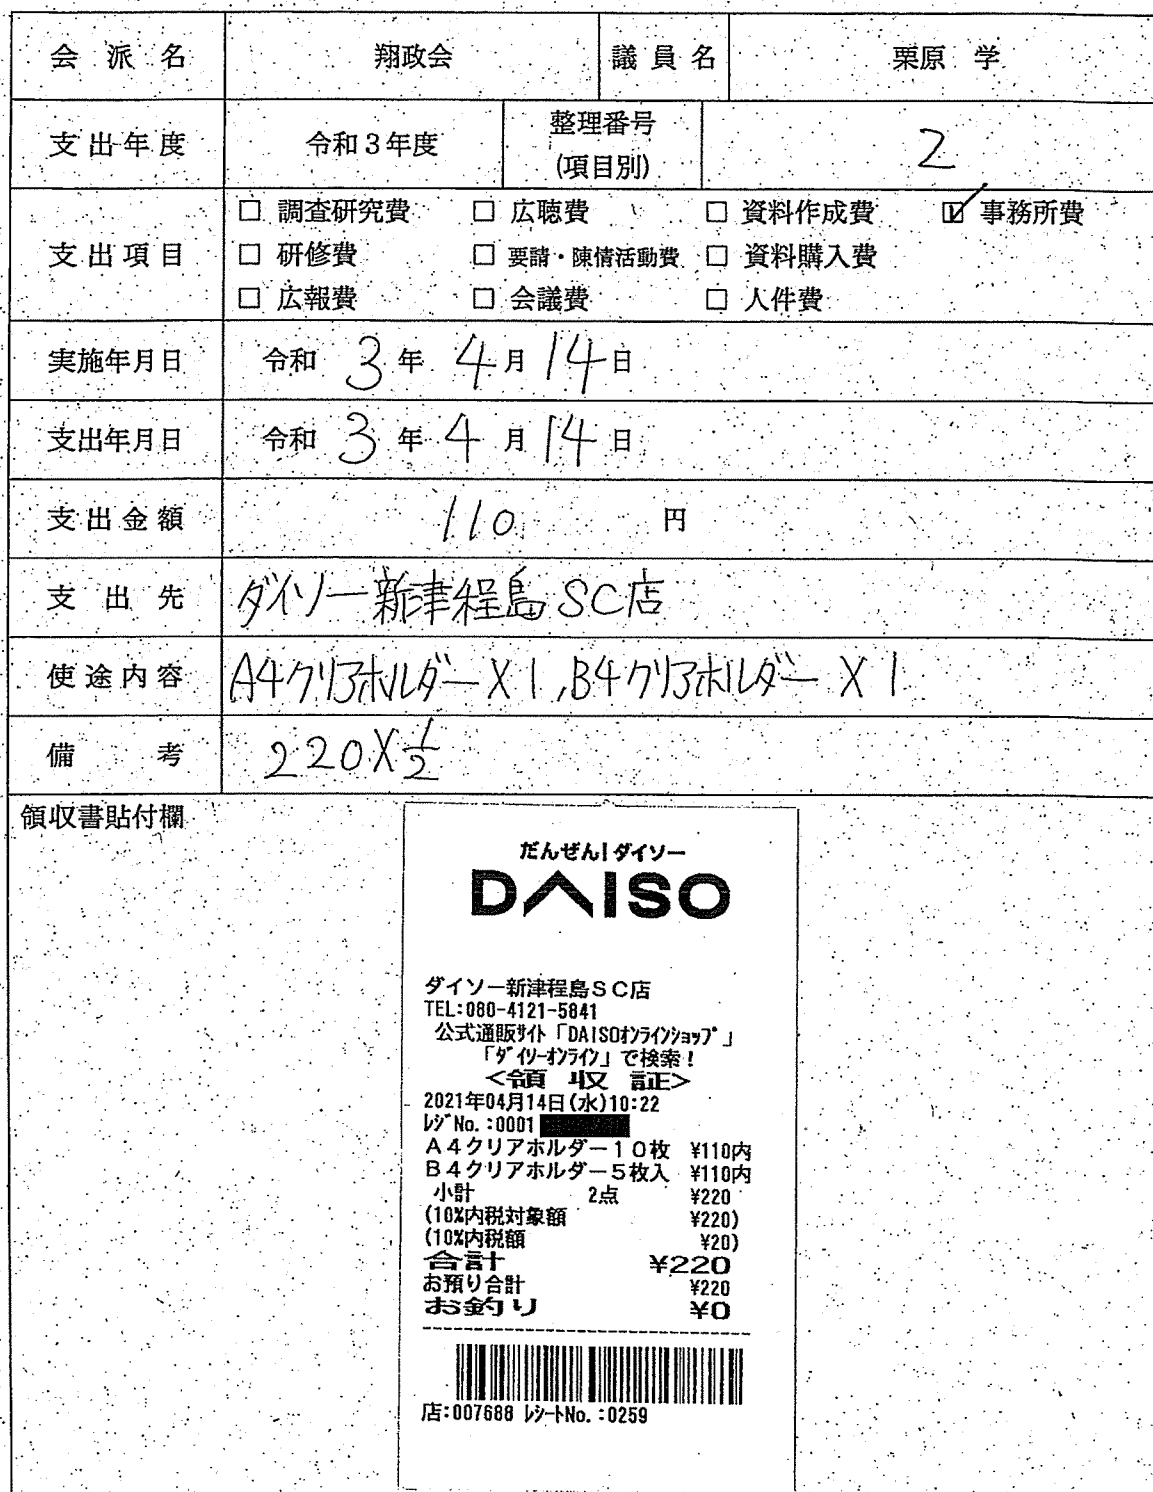 会派名 翔政会 議員名 栗原 学
支出年度 令和3年度 整理番号(項目別) 2
支出項目
□ 調査研究費 □ 広聴費 □ 資料作成費 ☑ 事務所費
□ 研修費 □ 要請・陳情活動費 □ 資料購入費
□ 広報費 □ 会議費 □ 人件費
実施年月日 令和 3年 4月 14日
支出年月日 令和 3年 4月 14日
支出金額 110 円
支出先 ダイソー新津程島SC店
使途内容 A4クリアホルダー×1,B4クリアホルダー×1
備考 220×1/2
領収書貼付欄
だんぜん!ダイソー
DAISO
ダイソー新津程島SC店
TEL:080-4121-5841
公式通販サイト「DAISOオンラインショップ」
「ダイソーオンライン」で検索!
<領収証>
2021年04月14日(水)10:22
レジNo.:0001
A4クリアホルダー10枚 ¥110内
B4クリアホルダー5枚入 ¥110内
小計 2点 ¥220
(10%内税対象額 ¥220)
(10%内税額 ¥20)
合計 ¥220
お預り合計 ¥220
お釣り ¥0
店:007688 レシートNo.:0259